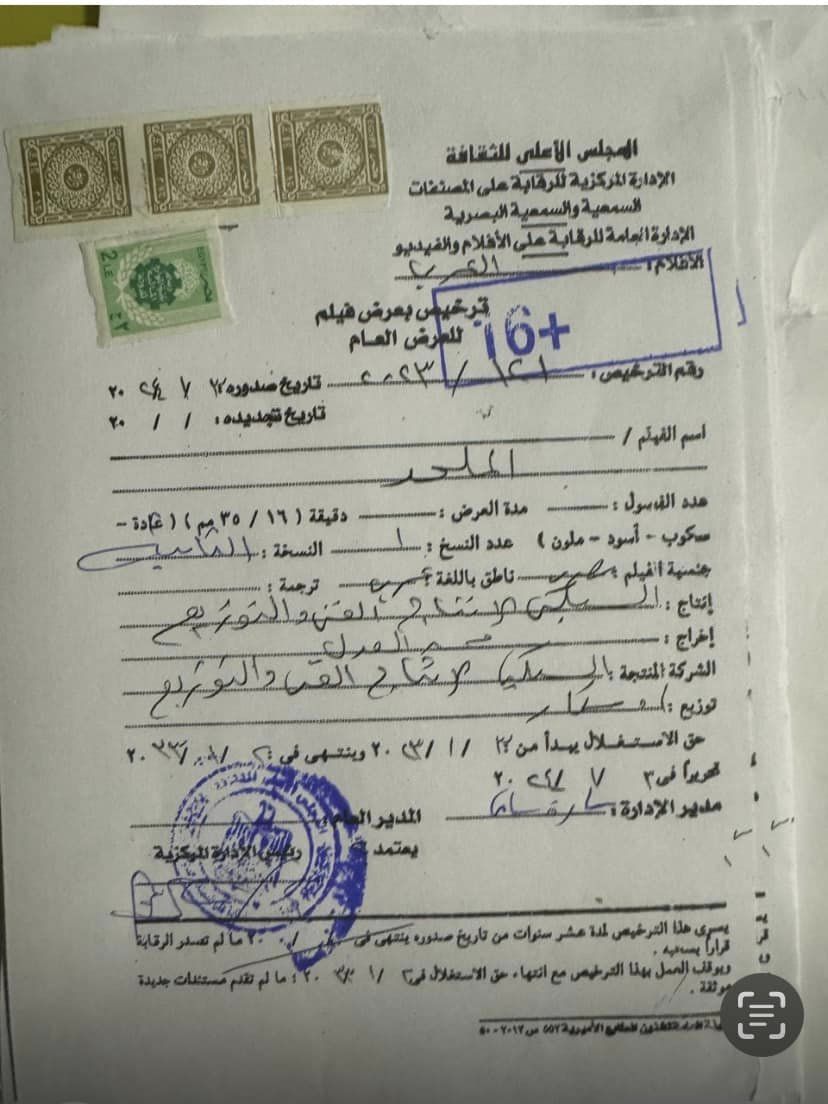 المجلس الأعلى للثقافة
الإدارة المركزية للرقابة على المصنفات
السمعية والسمعية البصرية
الإدارة العامة للرقابة على الأفلام والفيديو
الأفلام : العربي
16+
ترخيص بعرض فيلم
للعرض العام
رقم الترخيص : ١٢١ / ٢٠٢٣ تاريخ صدوره ٧ ٢٠٢٤
تاريخ تجديده : / / ٢٠
اسم الفيلم /
الملحد
عدد الفصول : مدة العرض : دقيقة ( ١٦ / ٣٥ مم ) ( عادة -
سكوب - أسود - ملون ) عدد النسخ : ١ النسخة : الثانية
جنسية الفيلم : مصرى ناطق باللغة : عربى ترجمة :
إنتاج : السبكى لإنتاج الفنى والتوزيع
إخراج : محمد العدل
الشركة المنتجة : السبكى لإنتاج الفنى والتوزيع
توزيع :
حق الاستغلال يبدأ من / ١ / ٢٠٢٣ وينتهى فى : ٢٠٣٣
تحريرا فى ٣ / ٧ / ٢٠٢٤
مدير الإدارة : سارة المدير العام :
يعتمد
رئيس الإدارة المركزية
يسرى هذا الترخيص لمدة عشر سنوات من تاريخ صدوره ينتهى فى / / ٢٠٠ ما لم تصدر الرقابة
قرارا بسحبه .
ويوقف العمل بهذا الترخيص مع انتهاء حق الاستغلال فى ما لم تقدم مستندات جديدة
موثقة .
المطابع الأميرية ٥٥٢ س ٢٠١٢ - ٥٠
2 L.E
EGYPT
مصر